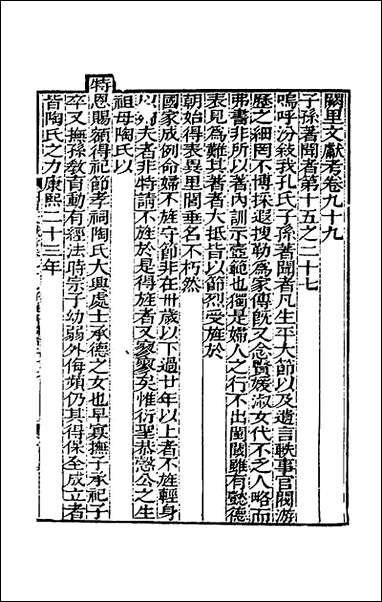 闕里文獻考卷九十九
子孫著聞者第十五之二十七
嗚呼汾敘我孔氏子孫著聞者凡生平大節以及遺言軼事官閥游
歷之細罔不博採遐搜勒為家傳旣又念賢媛淑女代不乏人略而
弗書非所以著內訓示壼範也獨是婦人之行不出閨閫雖有懿德
表見為難其著者大抵皆以節烈受旌於
朝始得表異里閭垂名不朽然
國家成例命婦不旌守節非在卅歲以下過廿年以上者不旌輕身
夫者非特請不旌於是得旌者又寥寥矣惟衍聖恭愨公之生
祖母陶氏以
特恩賜額得祀節孝祠陶氏大興處士承德之女也早寡撫子承祀子
卒又撫孫敎育動有經法時宗子幼弱外侮頻仍其得保全成立者
皆陶氏之力康熙二十三年